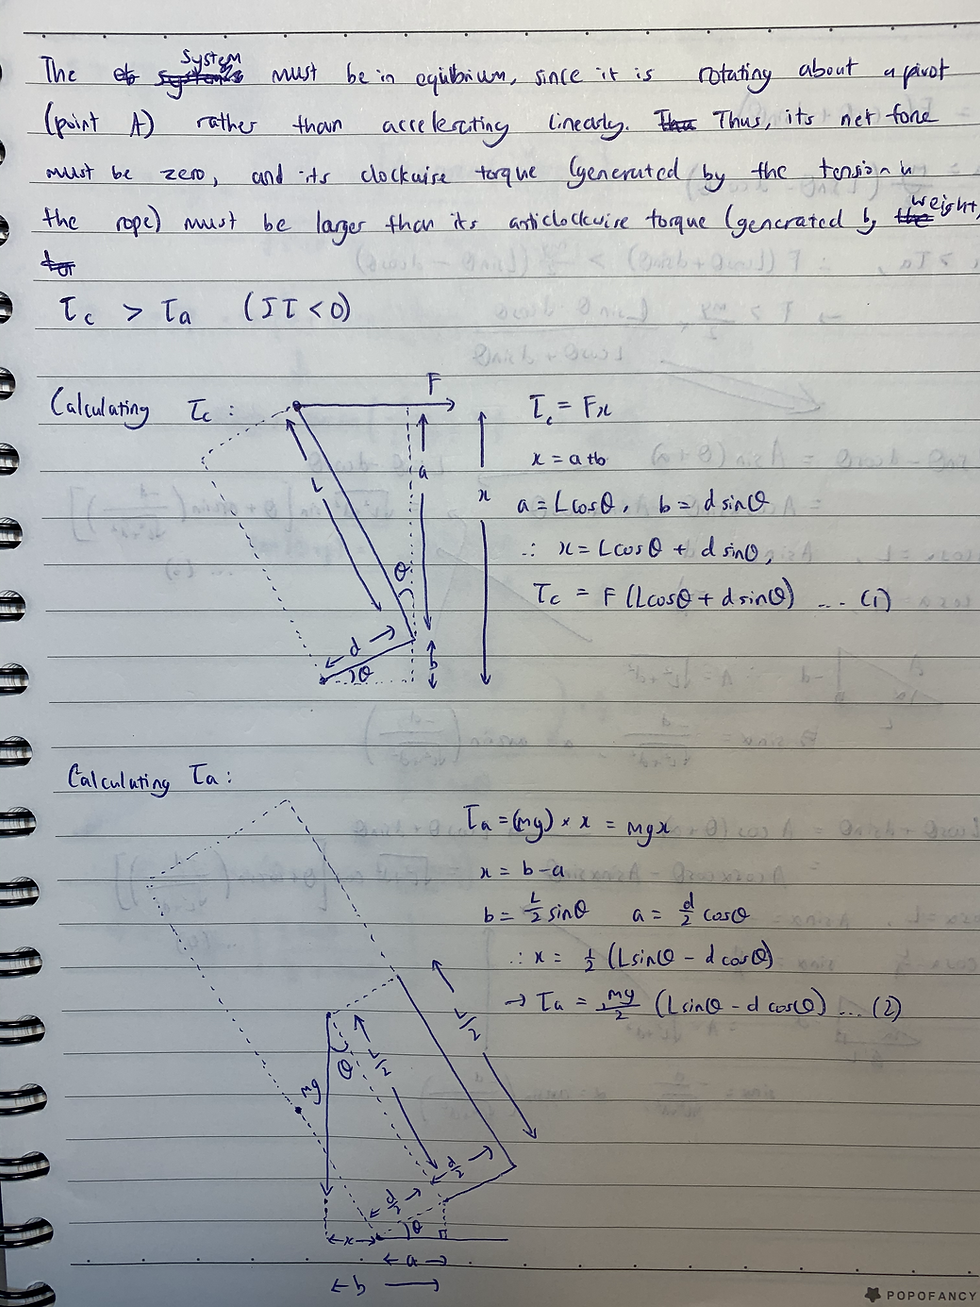 The system must be in equilbrium, since it is rotating about a pivot
(point A) rather than accelerating linearly. Thus, its net force
must be zero, and its clockwise torque (generated by the tension in
the rope) must be larger than its anticlockwise torque (generated by weight,
τc > τa (Στ < 0)
Calculating τc :
F
L
a
x
θ
d
θ
b
τc = Fx
x = a+b
a = Lcosθ, b = d sinθ
∴ x = Lcosθ + d sinθ,
τc = F (Lcosθ + d sinθ) ... (1)
Calculating τa :
τa = (mg) × x = mgx
x = b - a
b = L/2 sinθ a = d/2 cosθ
∴ x = 1/2 (Lsinθ - d cosθ)
→ τa = mg/2 (Lsinθ - d cosθ) ... (2)
L/2
θ
L/2
mg
d/2
d/2
θ
x
a
b
POPOFANCY